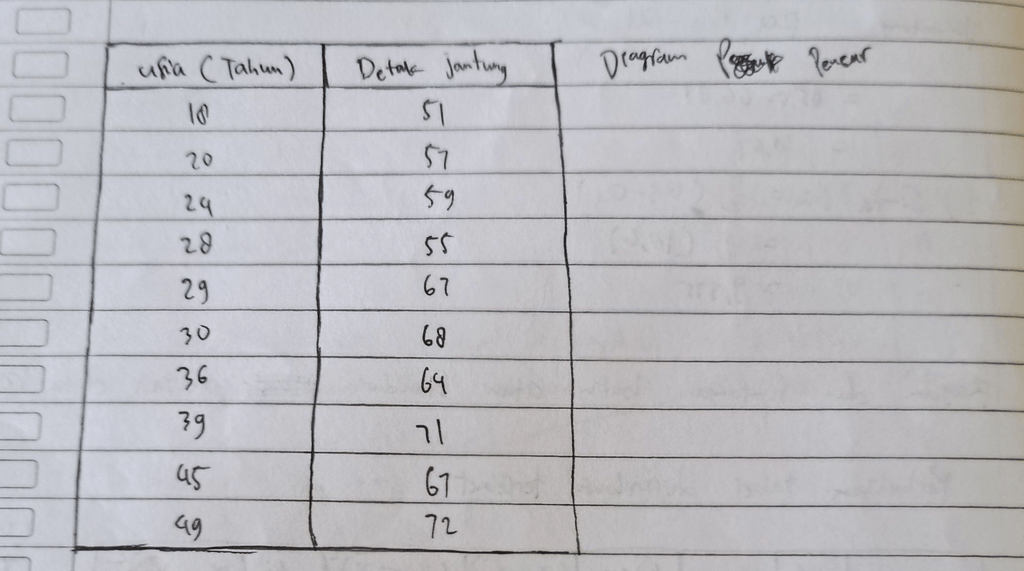 usia (Tahun) Detak jantung Diagram Pencar
18 51
20 57
24 59
28 55
29 67
30 68
36 64
39 71
45 67
49 72